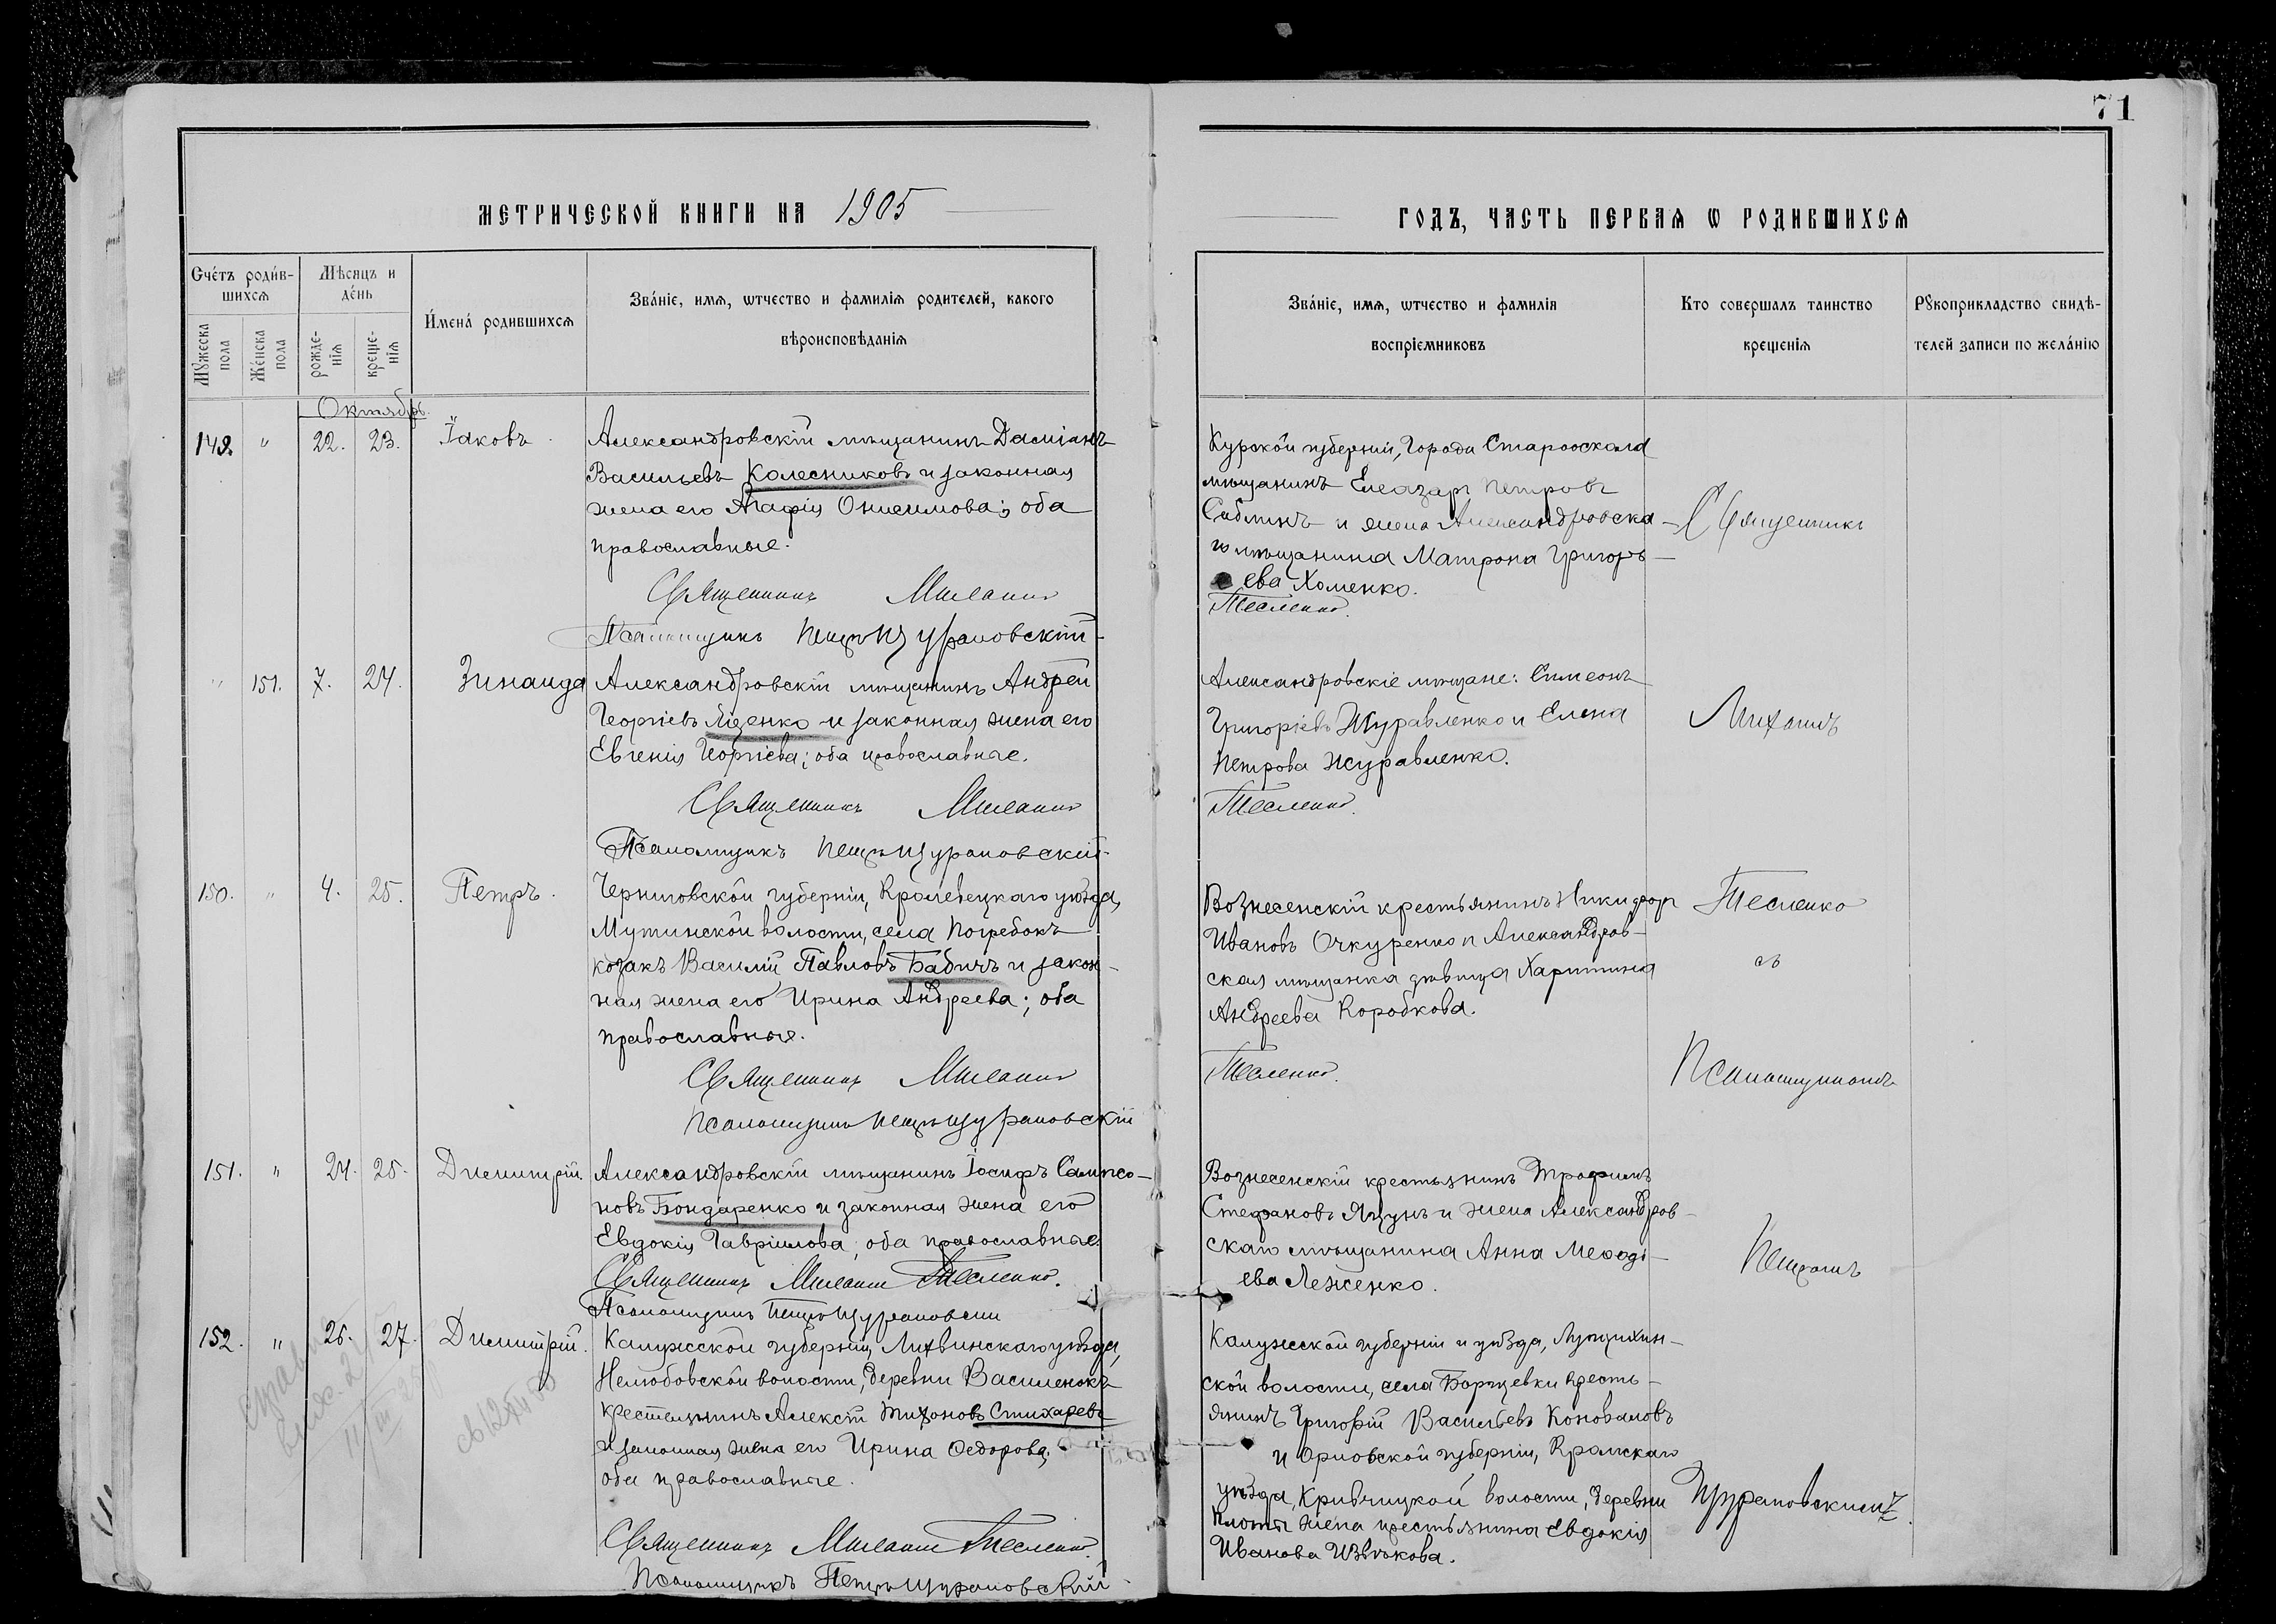 71
МЕТРИЧЕСКОЙ КНИГИ НА 1905
ГОДЪ, ЧАСТЬ ПЕРВАЯ Ѡ РОДИВШИХСЯ
Счетъ родив-
шихся
Мѣсяцъ и
день
Мужеска
пола
Женска
пола
рожде-
нія
креще-
нія
Имена родившихся
Званіе, имя, ѡтчество и фамилія родителей, какого
вѣроисповѣданія
Званіе, имя, ѡтчество и фамилія
воспріемниковъ
Кто совершалъ таинство
крещенія
Рꙋкоприкладство свидѣ-
телей записи по желанію
Октябрь.
149. " 22. 23. Іаковъ.
Александровскій мѣщанинъ Даміанъ
Васильевъ Колесниковъ и законная
жена его Агафія Онисимова; оба
православные.
Священникъ Михаилъ
Псаломщикъ Петръ Щурановскій
Курской губерніи, Города Староосколa
мѣщанинъ Елеазаръ Петровъ
Саблинъ и жена Александровска-
го мѣщанина Матрона Григорь-
ева Хоменко.
Тесленко.
" 151. 7. 24. Зинаида
Александровскій мѣщанинъ Андрей
Георгіевъ Яценко и законная жена его
Евгенія Георгіева; оба православные.
Священникъ Михаилъ
Псаломщикъ Петръ Щурановскій
Александровскіе мѣщане: Симеонъ
Григоріевъ Журавленко и Елена
Петрова Журавленко.
Тесленко.
150. " 4. 25. Петръ.
Черниговской губерніи, Кролевецкаго уѣзда,
Мутинской волости, села Погребокъ
козакъ Василій Павловъ Бабичъ и закон-
ная жена его Ирина Андреева; оба
православные.
Священникъ Михаилъ
Псаломщикъ Петръ Щурановскій
Вознесенскій крестьянинъ Никифоръ
Ивановъ Очкуренко и Александров-
ская мѣщанка дѣвица Харитина
Андреева Коробкова.
Тесленко.
151. " 24. 25. Димитрій.
Александровскій мѣщанинъ Іосифъ Сампсо-
новъ Бондаренко и законная жена его
Евдокія Гавріилова; оба православные.
Священникъ Михаилъ Тесленко.
Псаломщикъ Петръ Щурановскій
Вознесенскій крестьянинъ Трофимъ
Стефановъ Яцунъ и жена Александров-
скаго мѣщанина Анна Меѳоді-
ева Леженко.
152. " 26. 27. Димитрій.
Калужской губерніи Лихвинскаго уѣзда,
Нелюбовской волости, деревни Василенокъ
крестьянинъ Алексѣй Тихоновъ Стихаревъ
и законная жена его Ирина Ѳедорова,
оба православные.
Священникъ Михаилъ Тесленко.
Псаломщикъ Петръ Щурановскій
Калужской губерніи и уѣзда,
ской волости, села Борщевки кресть-
янинъ Григорій Васильевъ Коноваловъ
и Орловской губерніи, Кромскаго
уѣзда, Кривчицкой волости, деревни
жена крестьянина Евдокія
Иванова Извѣкова.
Священникъ
Михаилъ
Тесленко
съ
Псаломщикомъ
Петромъ
Щурановскимъ.